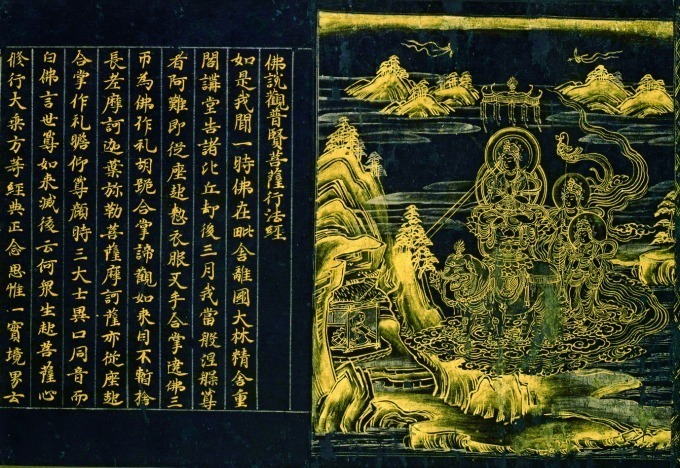 佛說觀普賢菩薩行法經
如是我聞一時佛在毗舍離國大林精舍重
閣講堂告諸比丘却後三月我當般涅槃尊
者阿難即從座起整衣服叉手合掌遶佛三
帀為佛作礼胡跪合掌諦觀如来目不暫捨
長老摩訶迦葉弥勒菩薩摩訶薩亦從座起
合掌作礼瞻仰尊顔時三大士異口同音而
白佛言世尊如来滅後云何衆生起菩薩心
修行大乘方等經典正念思惟一實境界云